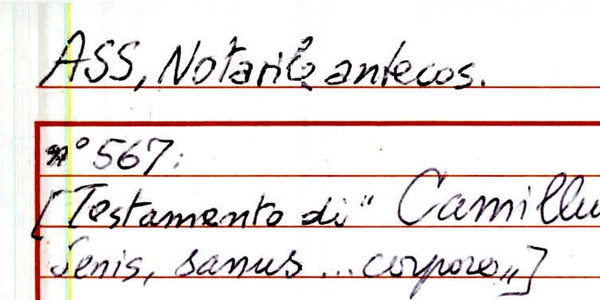 ASS, Notarile antecos.
n° 567:
[Testamento di "Camillu
Senis, sanus ... corpore"]